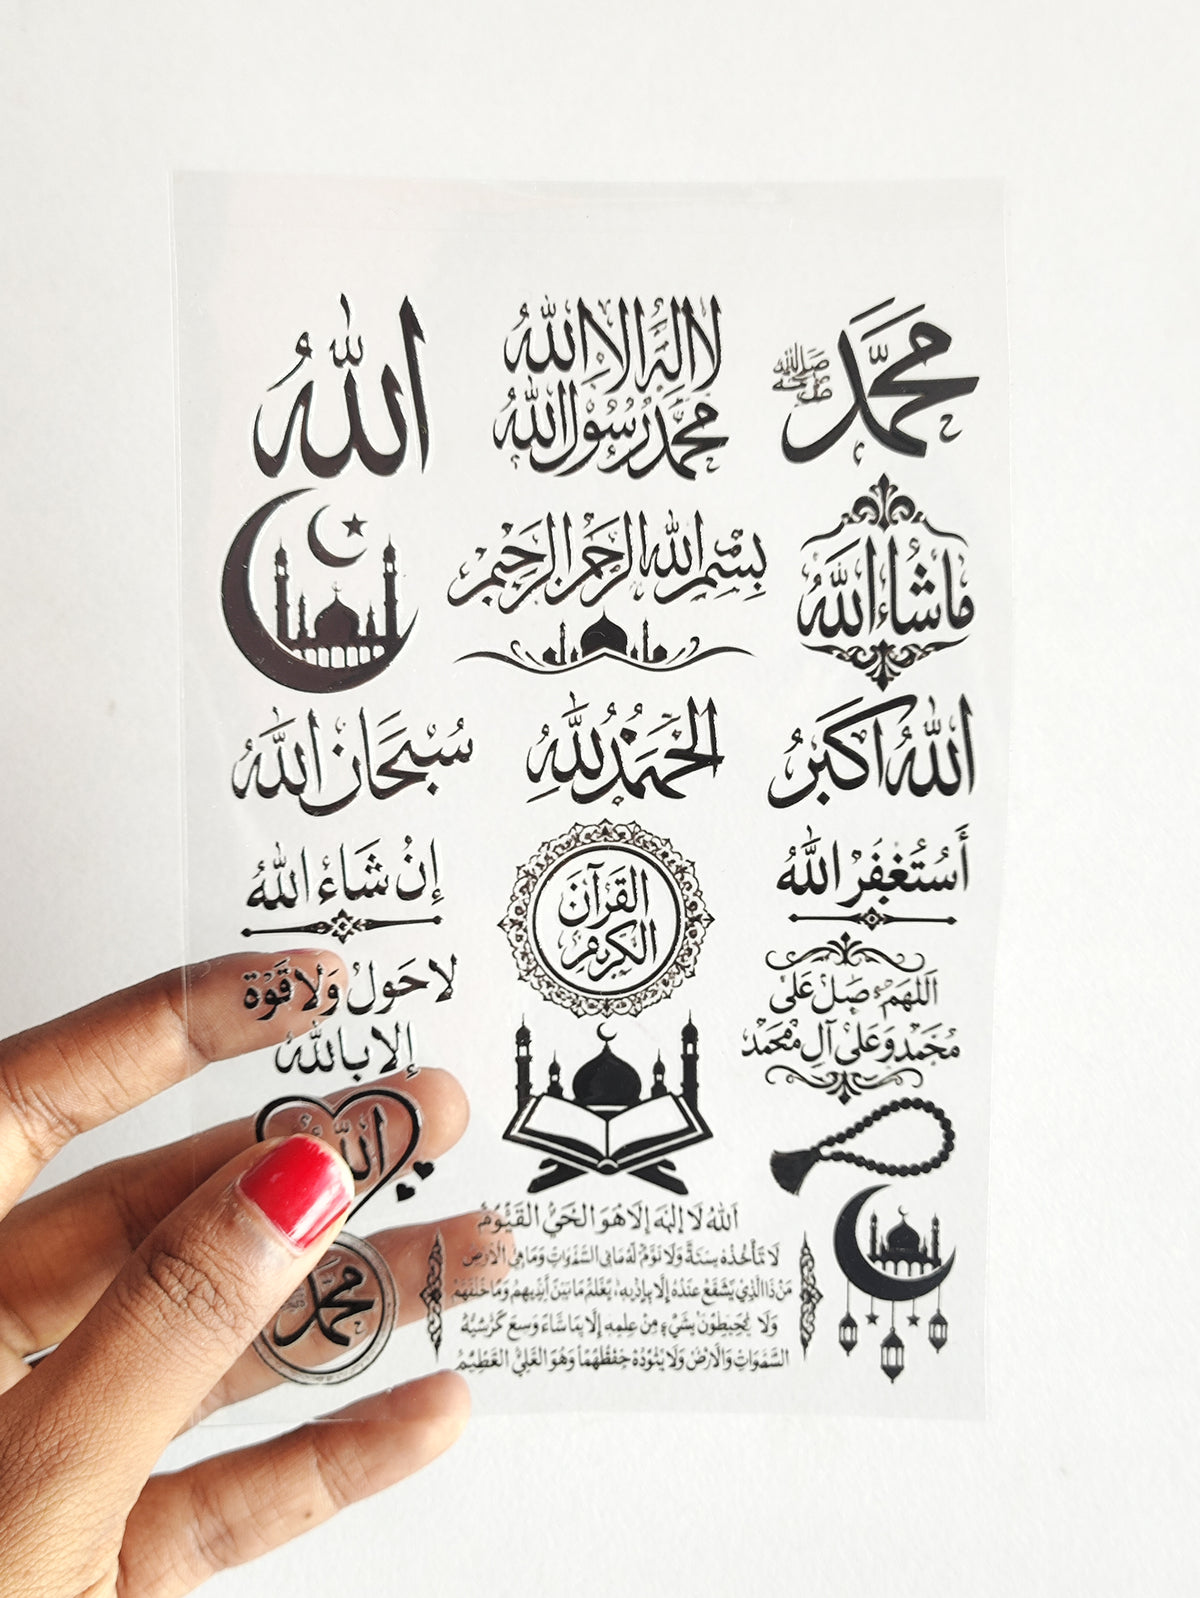 اللهُ
لا اله الا الله
محمد رسول الله
محمد
بسم الله الرحمن الرحيم
ماشاء الله
سبحان الله
الحمد لله
الله اكبر
إن شاء الله
القرآن
الكريم
أستغفر الله
لا حول ولا قوة
إلا بالله
اللهم صل على
محمد وعلى آل محمد
الله
محمد
الله لا إله إلا هو الحي القيوم
لا تأخذه سنة ولا نوم له ما في السموات وما في الأرض
من ذا الذي يشفع عنده إلا بإذنه يعلم ما بين أيديهم وما خلفهم
ولا يحيطون بشيء من علمه إلا بما شاء وسع كرسيه
السموات والأرض ولا يئوده حفظهما وهو العلي العظيم